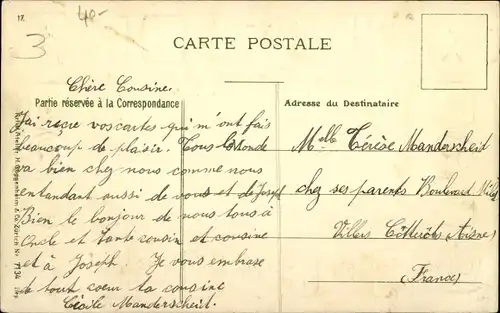 17.
40-
3
CARTE POSTALE
Chère Cousine.
Partie réservée à la Correspondance
Adresse du Destinataire
J'ai reçre vos cartes qui m'ont fais
beaucoup de plaisir. Tous le monde
va bien chez nous comme nous
entandant aussi de vous et de Joseph
Bien le bonjour de nous tous à
oncle et tante cousin et cousine
et à Joseph. Je vous embrase
de tout coeur ta cousine
Cécile Manderscheid.
Melle Térèse Manderscheid
chez ses parents Boulevard
Villers Côtterôts (Aisne)
(France)
H. Guggenheim & Co. Zürich Nr. 7134